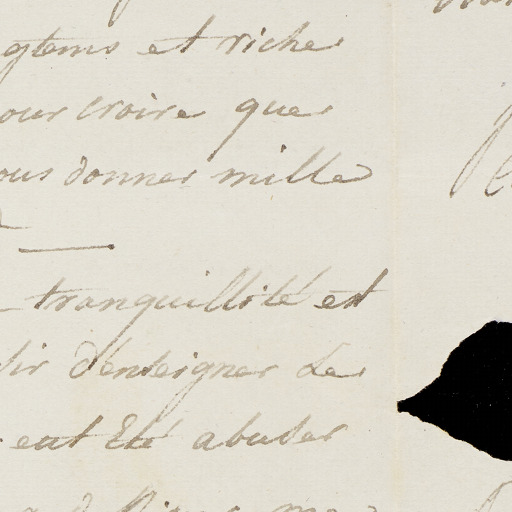 gtems et riche
our croire que
ous donner mille
tranquillité est
dir d'enseigner Le
eut Eté abuser